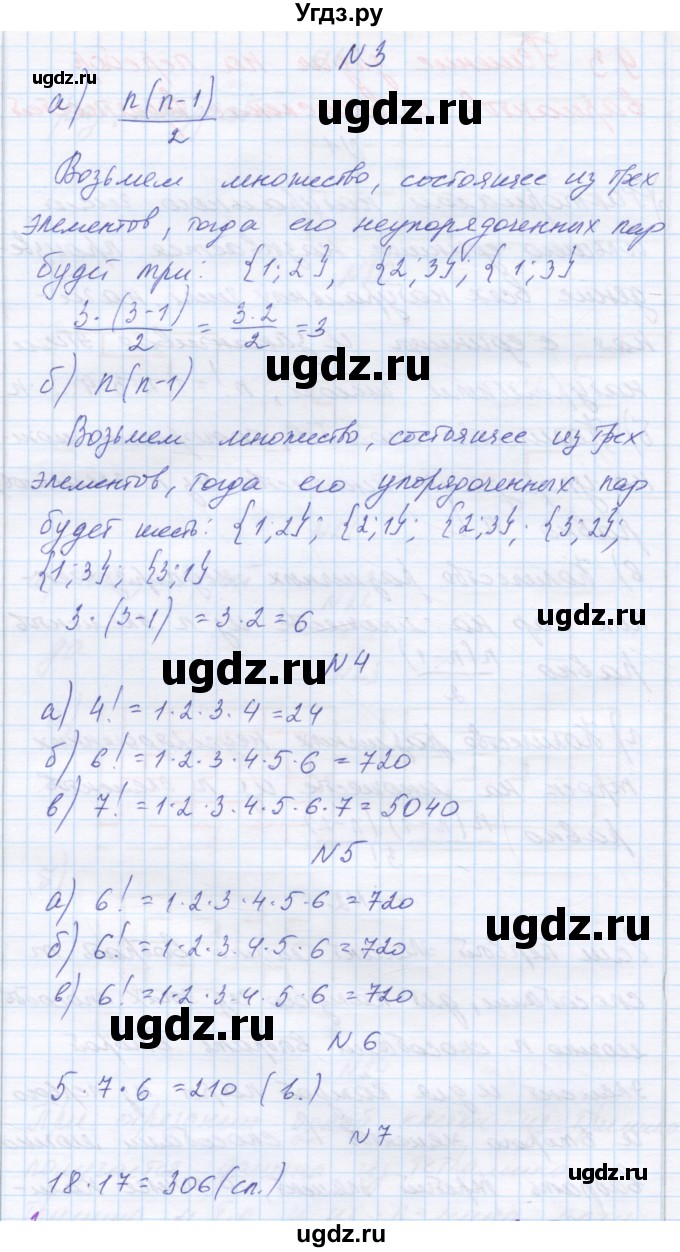 Угдз.ру
№3
ugdz.ru
а) n(n-1)/2
Возьмем множество, состоящее из трех
элементов, тогда его неупорядоченных пар
будет три: {1;2}, {2;3}; {1;3}
3·(3-1)/2 = 3·2/2 = 3
ugdz.ru
б) n(n-1)
Возьмем множество, состоящее из трех
элементов, тогда его упорядоченных пар
будет шесть: {1;2}; {2;1}; {2;3}, {3;2};
{1;3}; {3;1}
3·(3-1) = 3·2 = 6
ugdz.ru
№4
ugdz.ru
а) 4! = 1·2·3·4 = 24
б) 6! = 1·2·3·4·5·6 = 720
в) 7! = 1·2·3·4·5·6·7 = 5040
№5
а) 6! = 1·2·3·4·5·6 = 720
ugdz.ru
б) 6! = 1·2·3·4·5·6 = 720
в) 6! = 1·2·3·4·5·6 = 720
ugdz.ru
№6
5·7·6 = 210 (в.)
№7
ugdz.ru
18·17 = 306 (сп.)
ugdz.ru